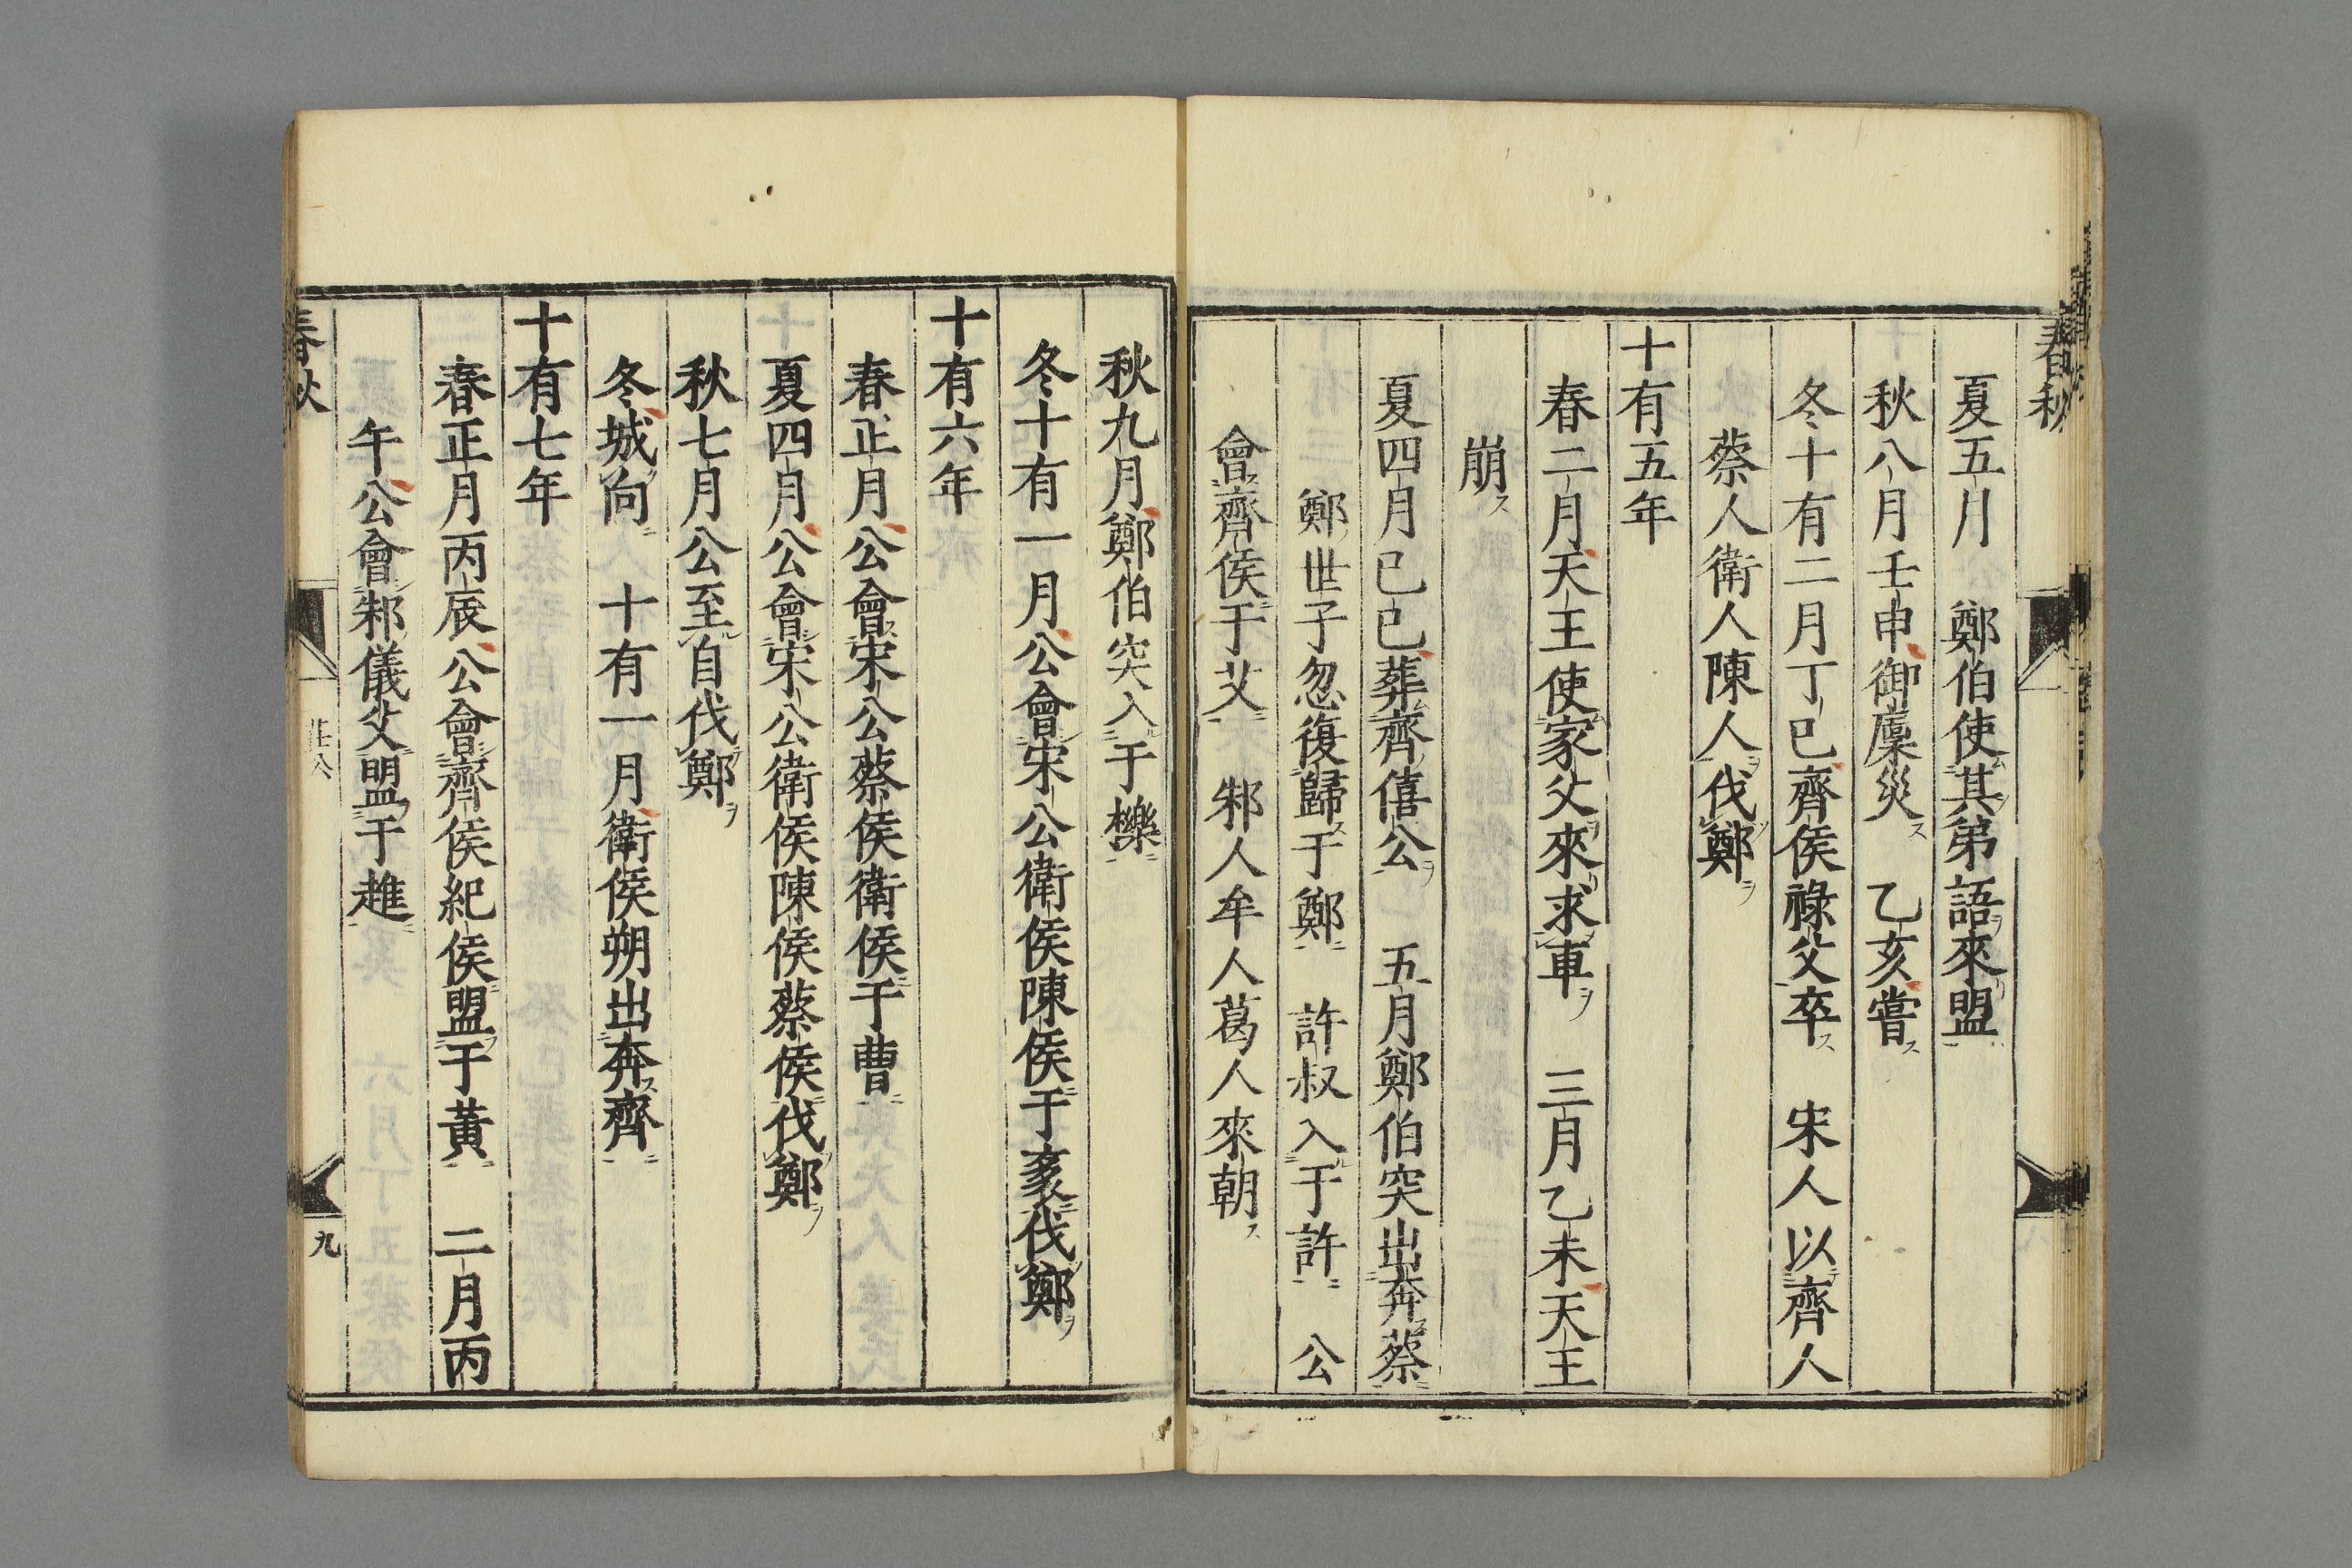 春秋
夏五月　鄭伯使其弟語來盟
秋八月壬申御廩災　乙亥嘗
冬十有二月丁巳齊侯祿父卒　宋人以齊人
蔡人衛人陳人伐鄭
十有五年
春二月天王使家父來求車　三月乙未天王
崩
夏四月己巳葬齊僖公　五月鄭伯突出奔蔡
鄭世子忽復歸于鄭　許叔入于許　公
會齊侯于艾　邾人牟人葛人來朝
秋九月鄭伯突入于櫟
冬十有一月公會宋公衛侯陳侯于袲伐鄭
十有六年
春正月公會宋公蔡侯衛侯于曹
夏四月公會宋公衛侯陳侯蔡侯伐鄭
秋七月公至自伐鄭
冬城向　十有一月衛侯朔出奔齊
十有七年
春正月丙辰公會齊侯紀侯盟于黃　二月丙
午公會邾儀父盟于趡
春秋
九